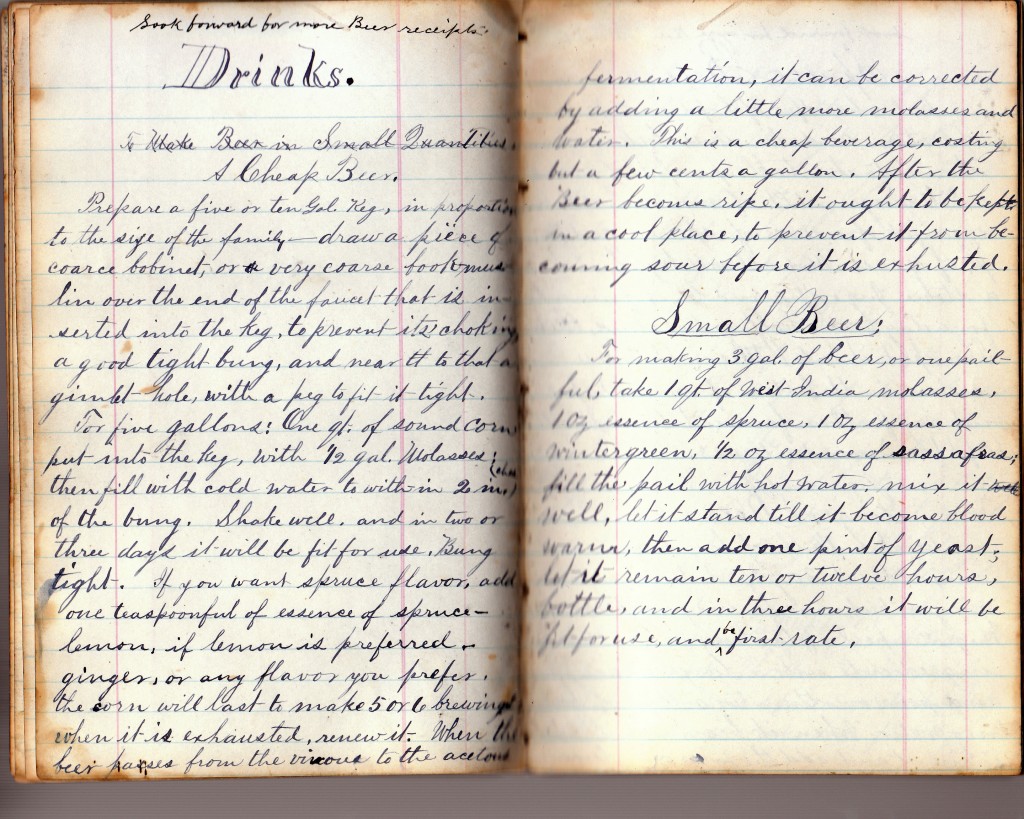 Look forward for more Beer receipts.
Drinks.
To Make Beer in Small Quantities.
A Cheap Beer.
Prepare a five or ten Gal. Keg, in proportion
to the size of the family — draw a piece of
coarce bobinet, or a very coarse book mus-
lin over the end of the faucet that is in-
serted into the keg, to prevent its choking
a good tight bung, and near it to that a
gimlet hole, with a peg to fit it tight.
For five gallons: One qt. of sound corn
put into the keg, with 1/2 gal. Molasses;
then fill with cold water to with-in 2 in.
of the bung. Shake well, and in two or
three days it will be fit for use. Bung
tight. If you want spruce flavor, add
one teaspoonful of essence of spruce—
lemon, if lemon is preferred.—
ginger, or any flavor you prefer.
the corn will last to make 5 or 6 brewings
when it is exhausted, renew it. When the
beer passes from the vinous to the acetous
fermentation, it can be corrected
by adding a little more molasses and
water. This is a cheap beverage, costing
but a few cents a gallon. After the
Beer becomes ripe, it ought to be kept
in a cool place, to prevent it from be-
coming sour before it is exhusted.
Small Beer;
For making 3 gal. of beer, or one pail-
ful, take 1 qt. of West India molasses,
1 oz essence of spruce, 1 oz essence of
wintergreen, 1/2 oz essence of sassafras;
fill the pail with hot water, mix it
well, let it stand till it become blood
warm, then add one pint of yeast;
let it remain ten or twelve hours,
bottle, and in three hours it will be
fit for use, and be first-rate.